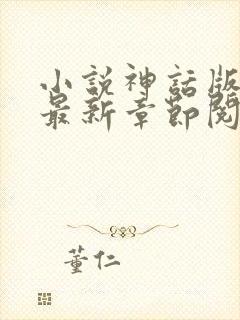 小説神話版
最新章節閱
董仁